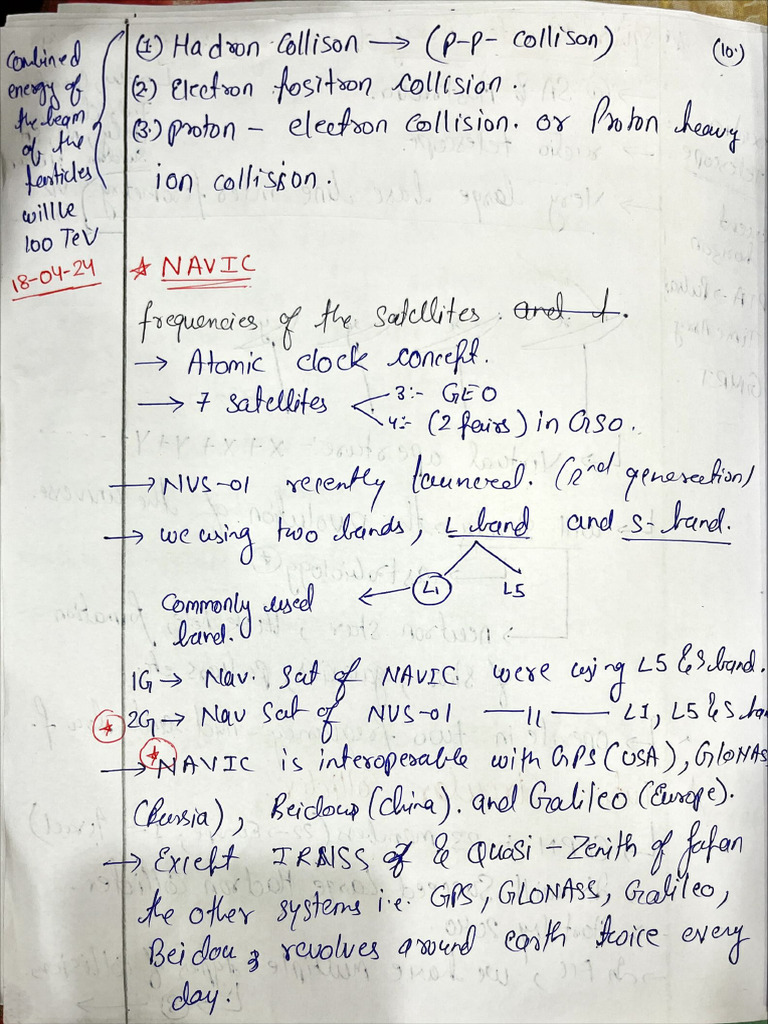 Combined
energy of
the beam
of the
particles
will be
100 TeV
(1) Hadron Collison → (p-p- collison)
(10.)
(2) Electron Positron collision.
(3.) proton - electron collision. or Proton heavy
ion collision.
18-04-24
☆ NAVIC
frequencies of the satellites and f.
→ Atomic clock concept.
→ 7 satellites
3:- GEO
4:- (2 pairs) in GSO.
→ NVS-01 recently launced. (2nd generation)
→ we using two bands, L band and S-band.
Commonly used
band.
← L1 L5
1G → Nav. Sat of NAVIC were using L5 & S band.
☆ 2G → Nav Sat of NVS-01 —11— L1, L5 & S ba
☆
→ NAVIC is interoperable with GPS (USA), GLONAS
(Russia), Beidou (China). and Galileo (Europe).
→ Except IRNSS of & Quasi-Zenith of Japan
the other systems i.e. GPS, GLONASS, Galileo,
Beidou, revolves around earth twice every
day.